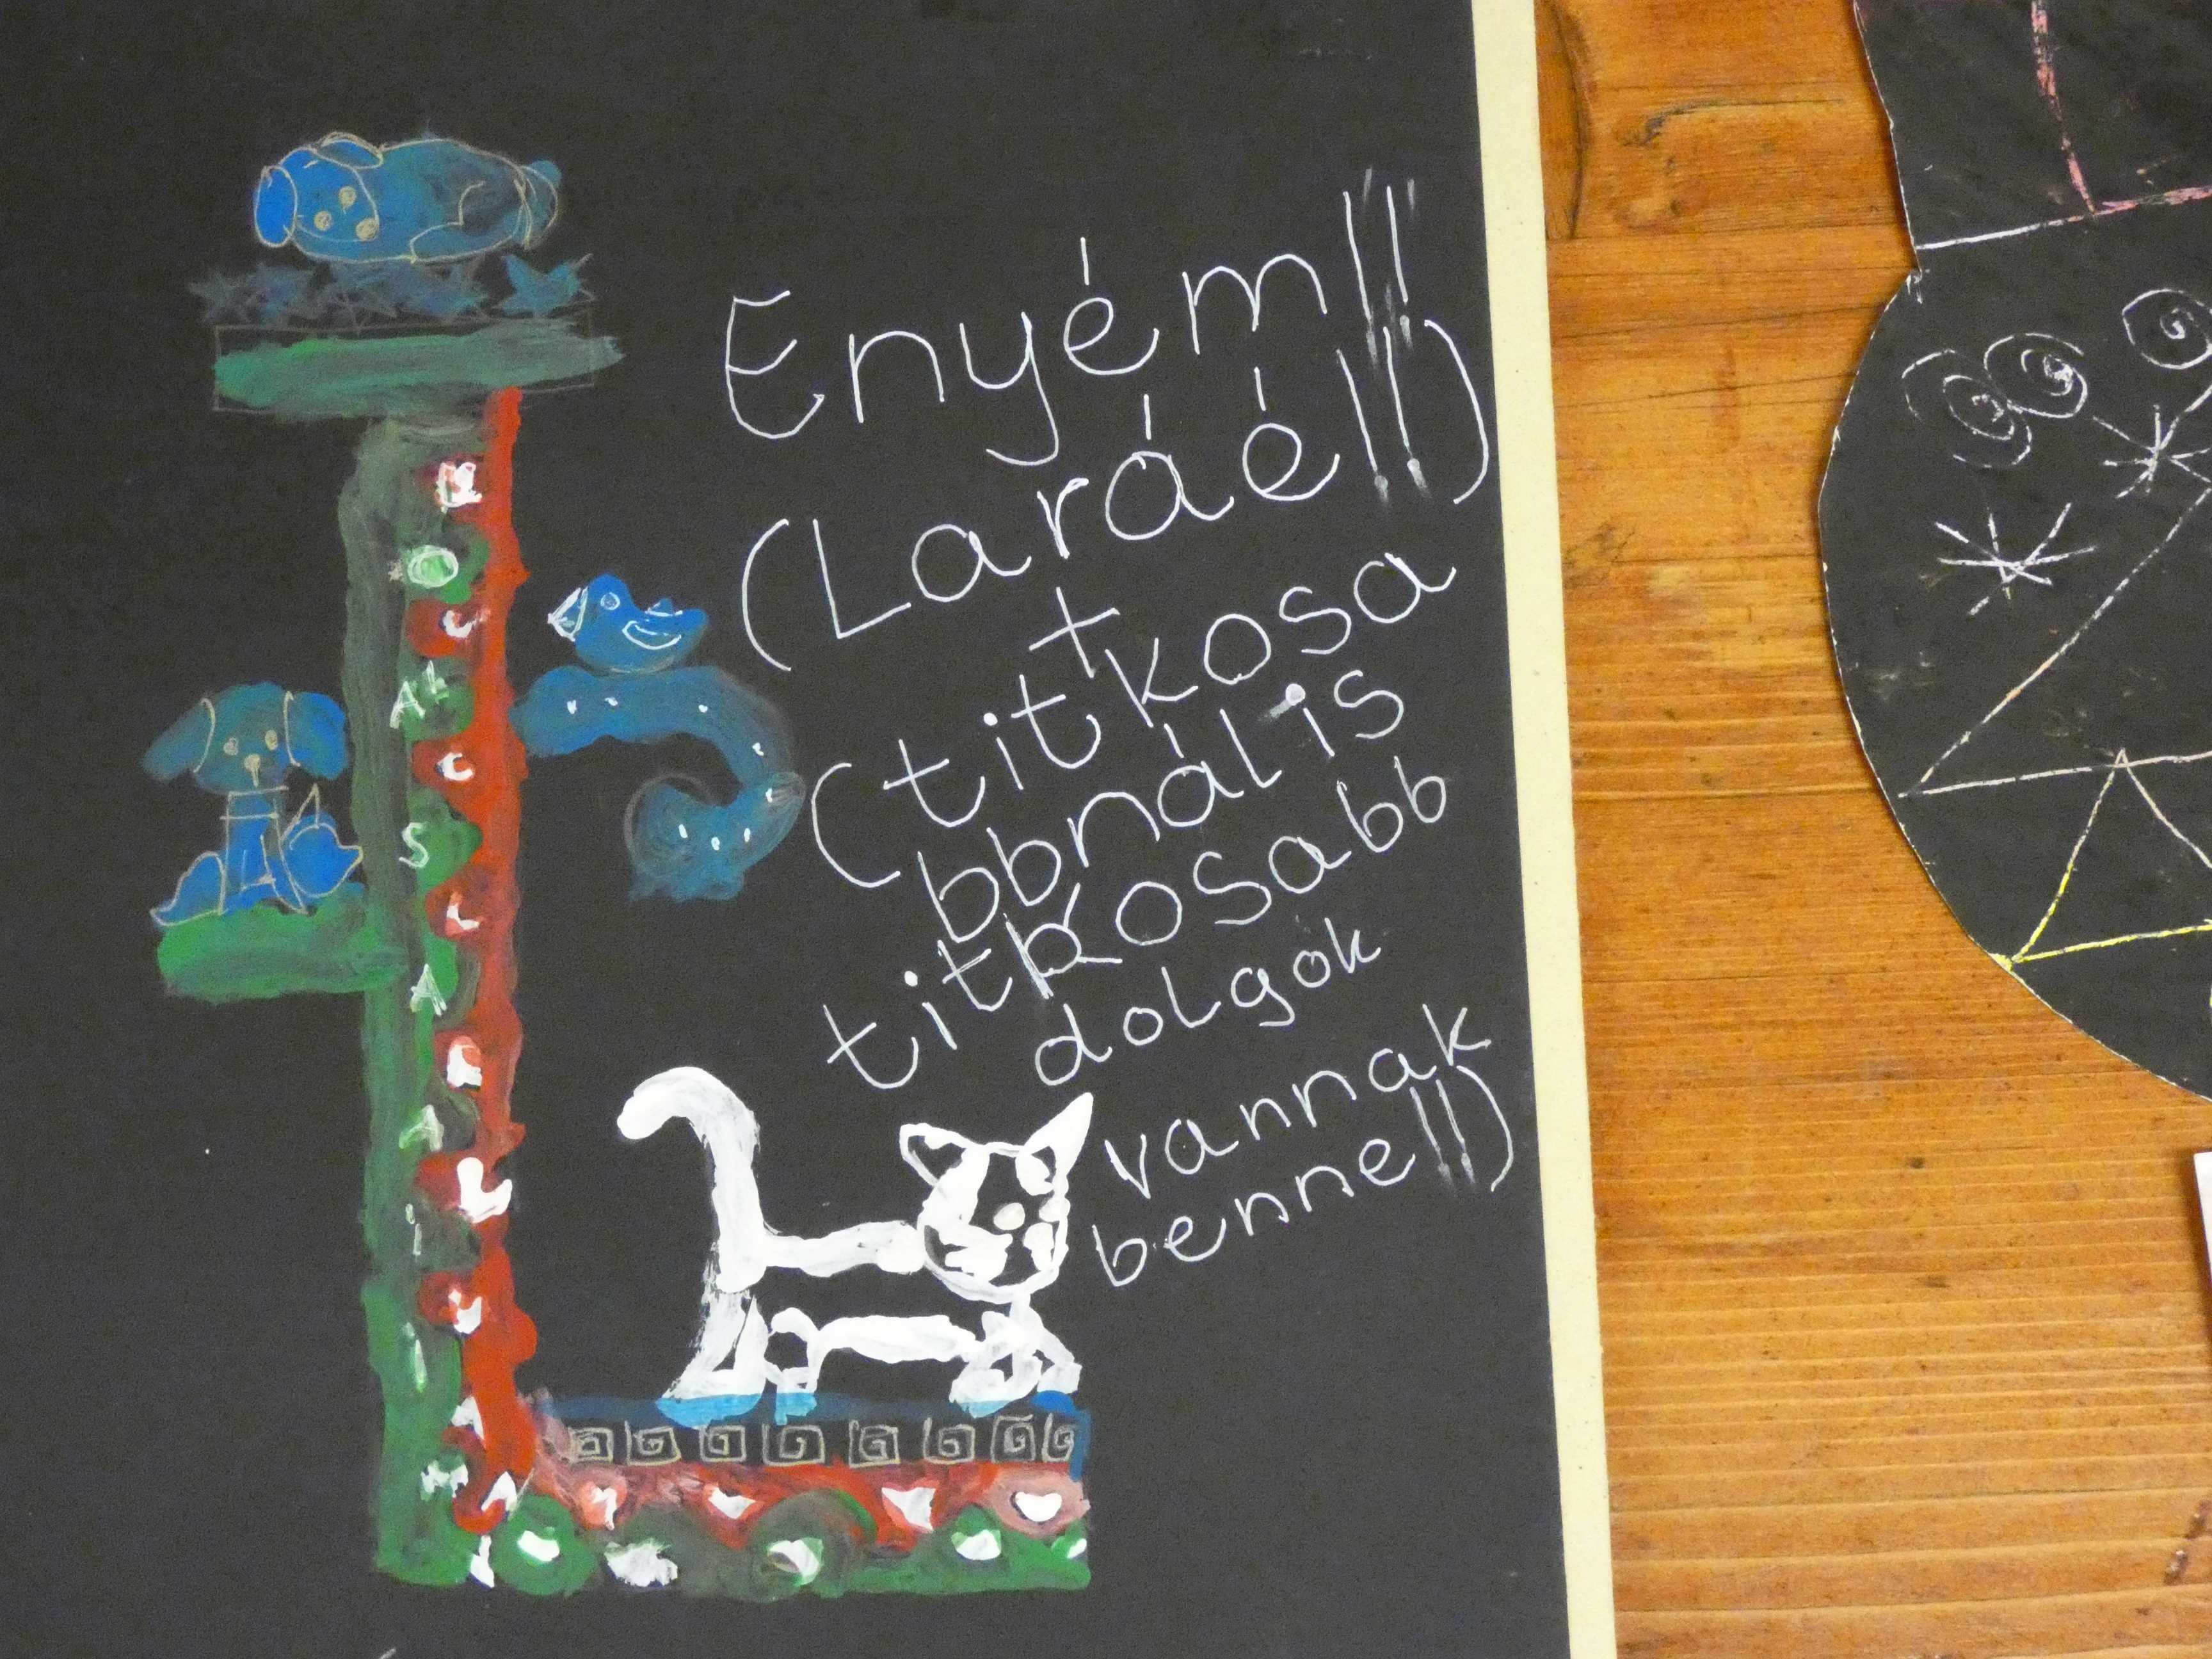 Enyém!!
(Laráé!!)
(titkosa
bbnál is
titkosabb
dolgok
vannak
benne!!)